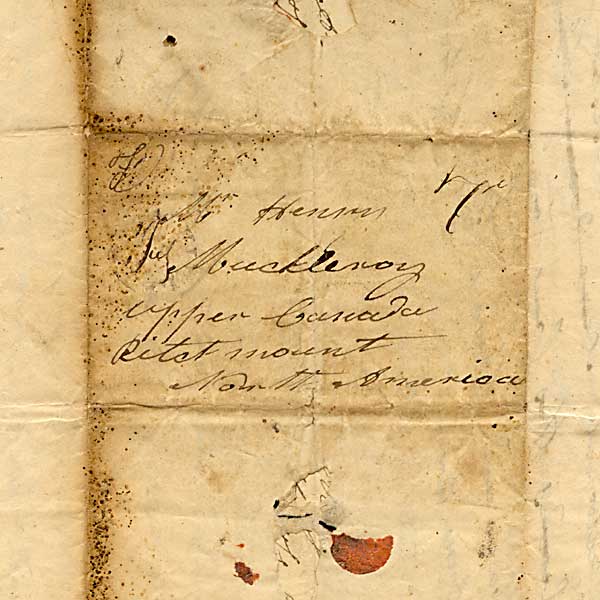 Mr Henry
Muckleroy
upper Canada
mount
North America